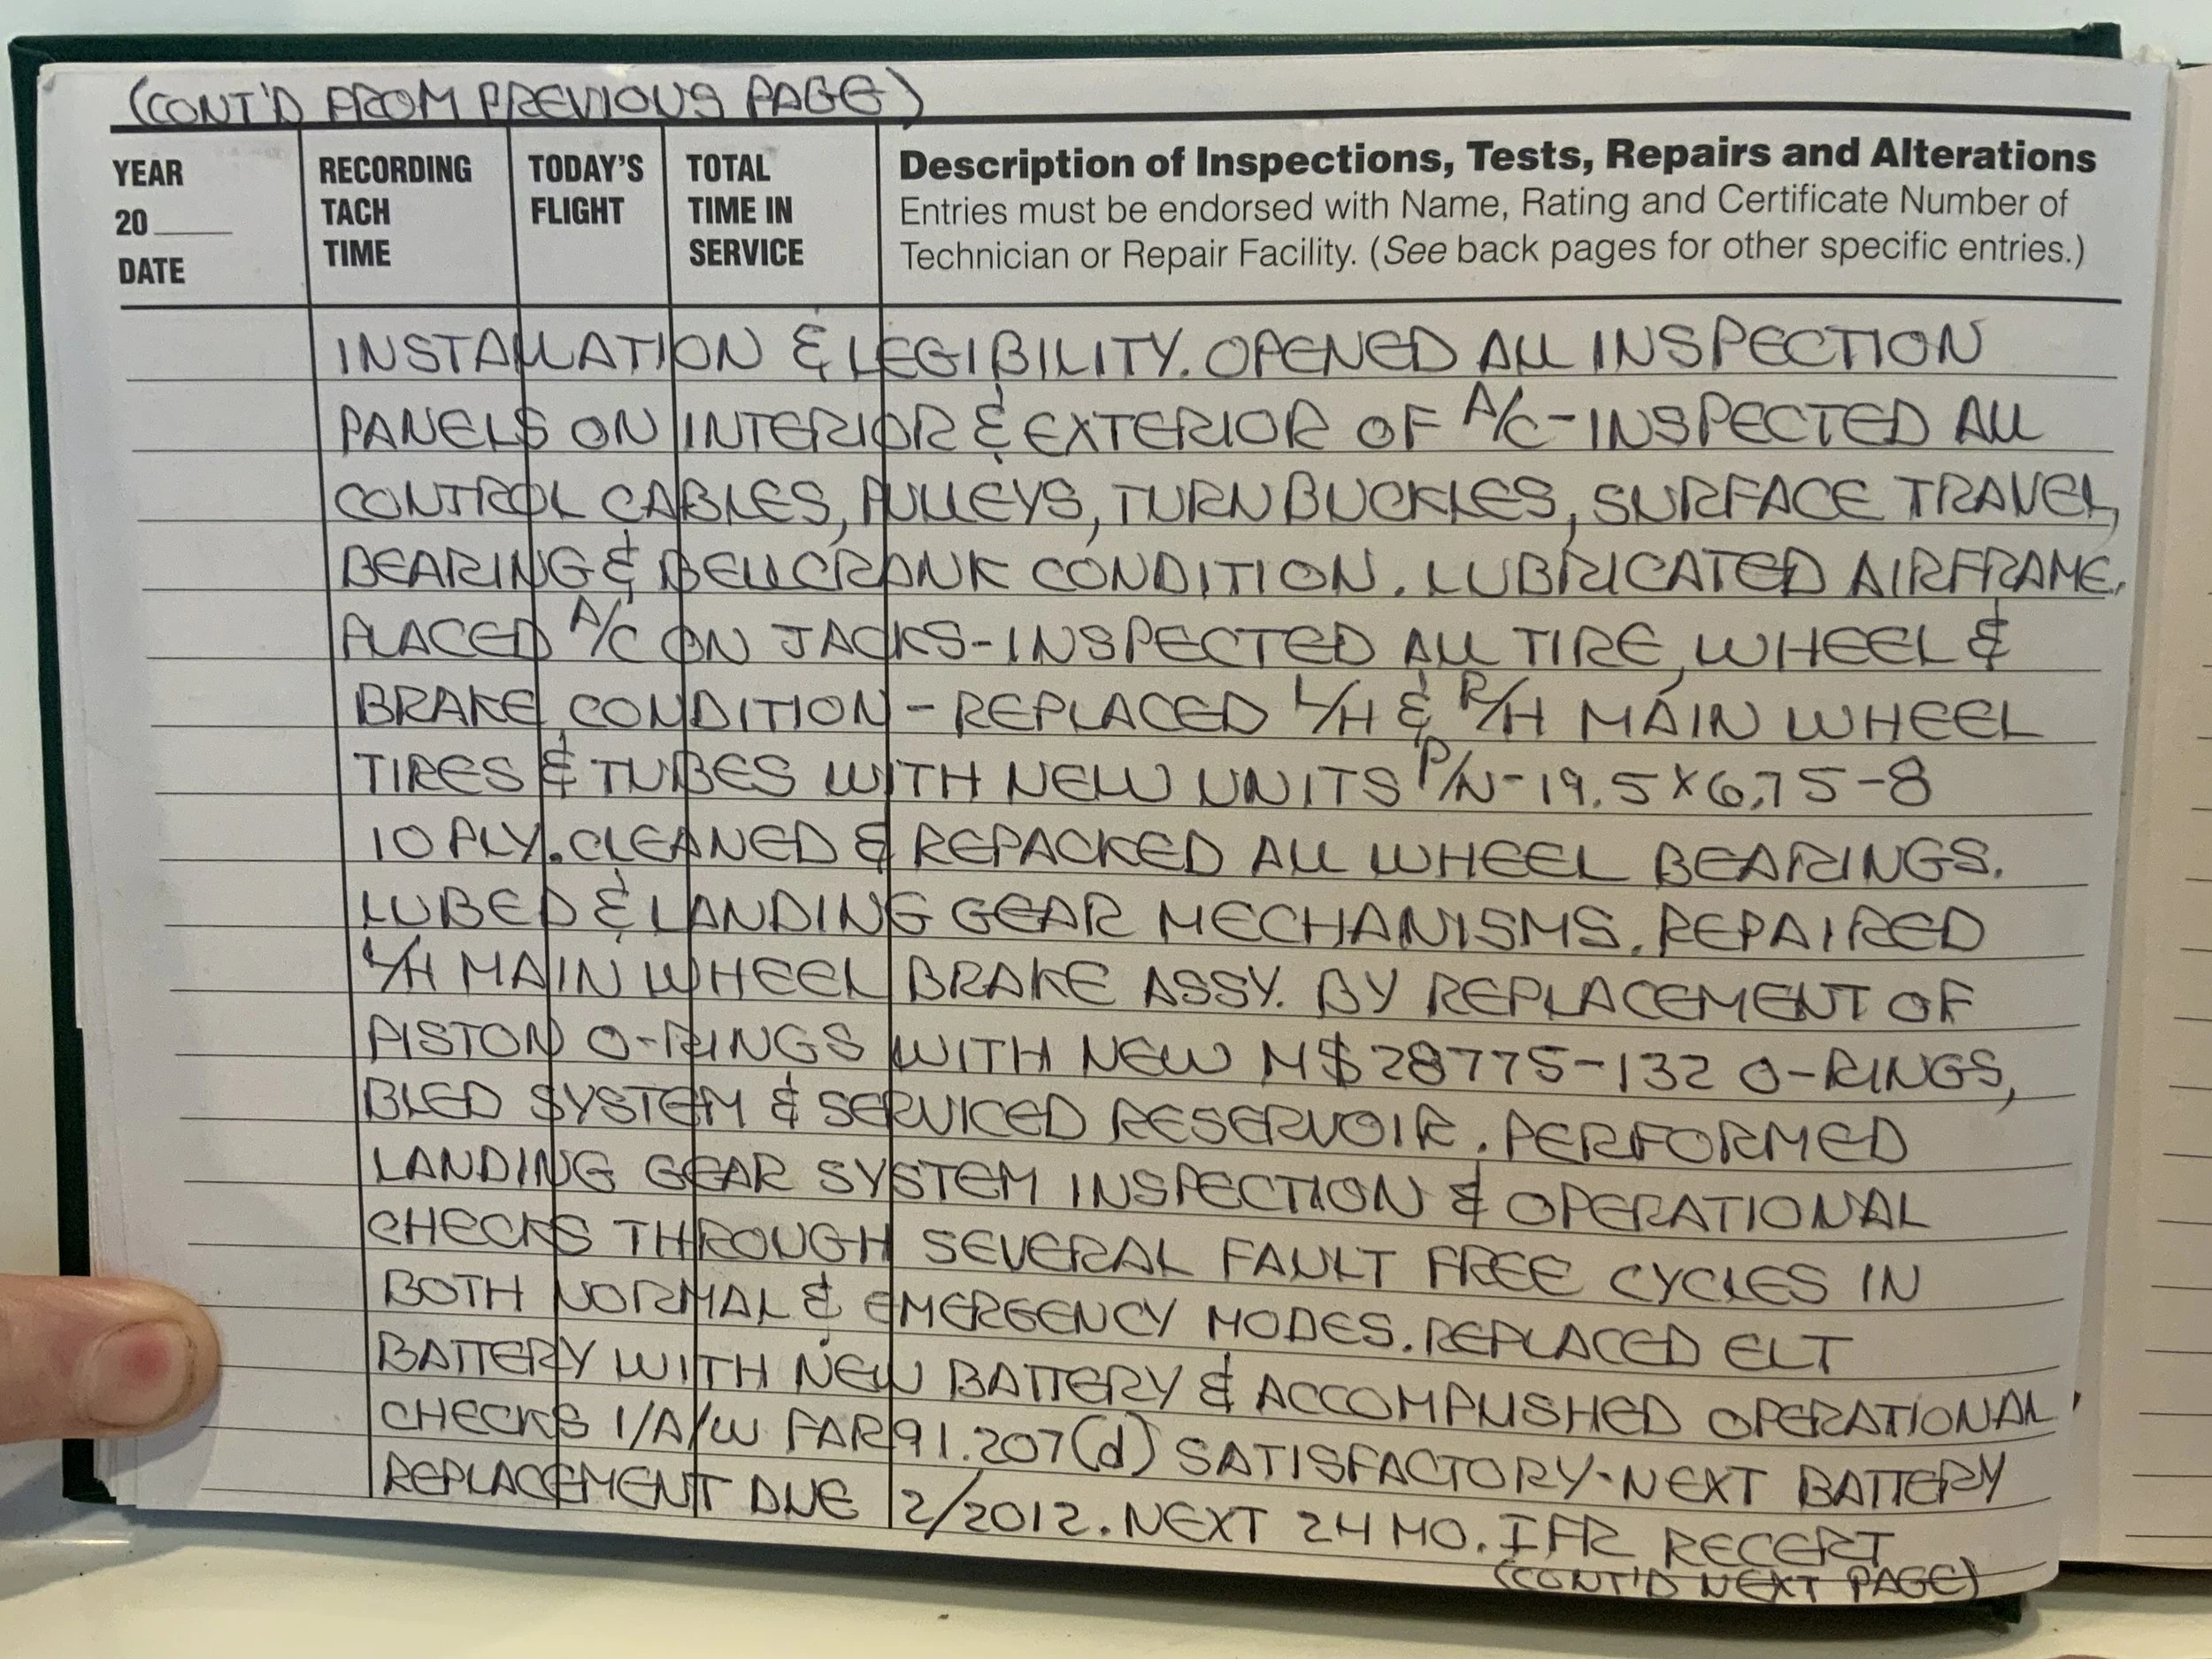 (CONT'D FROM PREVIOUS PAGE)
YEAR
20____
DATE
RECORDING
TACH
TIME
TODAY'S
FLIGHT
TOTAL
TIME IN
SERVICE
Description of Inspections, Tests, Repairs and Alterations
Entries must be endorsed with Name, Rating and Certificate Number of
Technician or Repair Facility. (See back pages for other specific entries.)
INSTALLATION & LEGIBILITY. OPENED ALL INSPECTION
PANELS ON INTERIOR & EXTERIOR OF A/C-INSPECTED ALL
CONTROL CABLES, PULLEYS, TURNBUCKLES, SURFACE TRAVEL,
BEARING & BELLCRANK CONDITION. LUBRICATED AIRFRAME.
PLACED A/C ON JACKS-INSPECTED ALL TIRE, WHEEL &
BRAKE CONDITION - REPLACED L/H & R/H MAIN WHEEL
TIRES & TUBES WITH NEW UNITS P/N-19.5X6.75-8
10 PLY. CLEANED & REPACKED ALL WHEEL BEARINGS.
LUBED & LANDING GEAR MECHANISMS. REPAIRED
L/H MAIN WHEEL BRAKE ASSY. BY REPLACEMENT OF
PISTON O-RINGS WITH NEW MS28775-132 O-RINGS,
BLED SYSTEM & SERVICED RESERVOIR. PERFORMED
LANDING GEAR SYSTEM INSPECTION & OPERATIONAL
CHECKS THROUGH SEVERAL FAULT FREE CYCLES IN
BOTH NORMAL & EMERGENCY MODES. REPLACED ELT
BATTERY WITH NEW BATTERY & ACCOMPLISHED OPERATIONAL
CHECKS I/A/W FAR 91.207(d) SATISFACTORY-NEXT BATTERY
REPLACEMENT DUE 2/2012. NEXT 24 MO. IFR RECERT
(CONT'D NEXT PAGE)